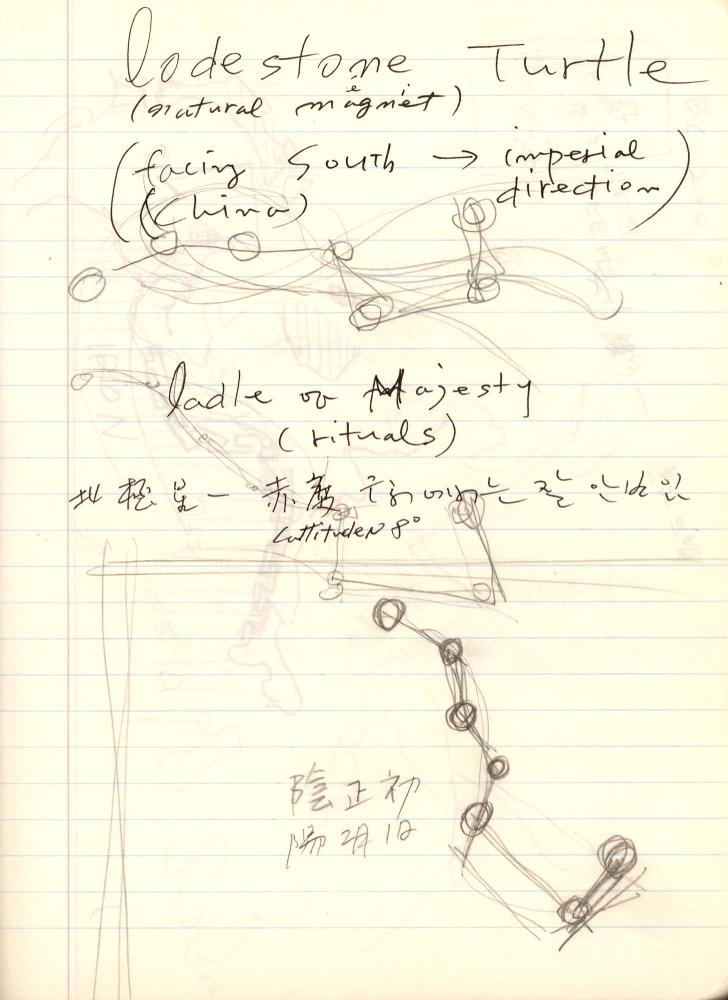 lodestone Turtle
(natural magnet)
(facing South → imperial
(China) direction)
ladle of Majesty
(rituals)
北極星 - 赤道 에서는 잘 안보임
Lattitude N 8°
陰 正 初
陽 2月 1日